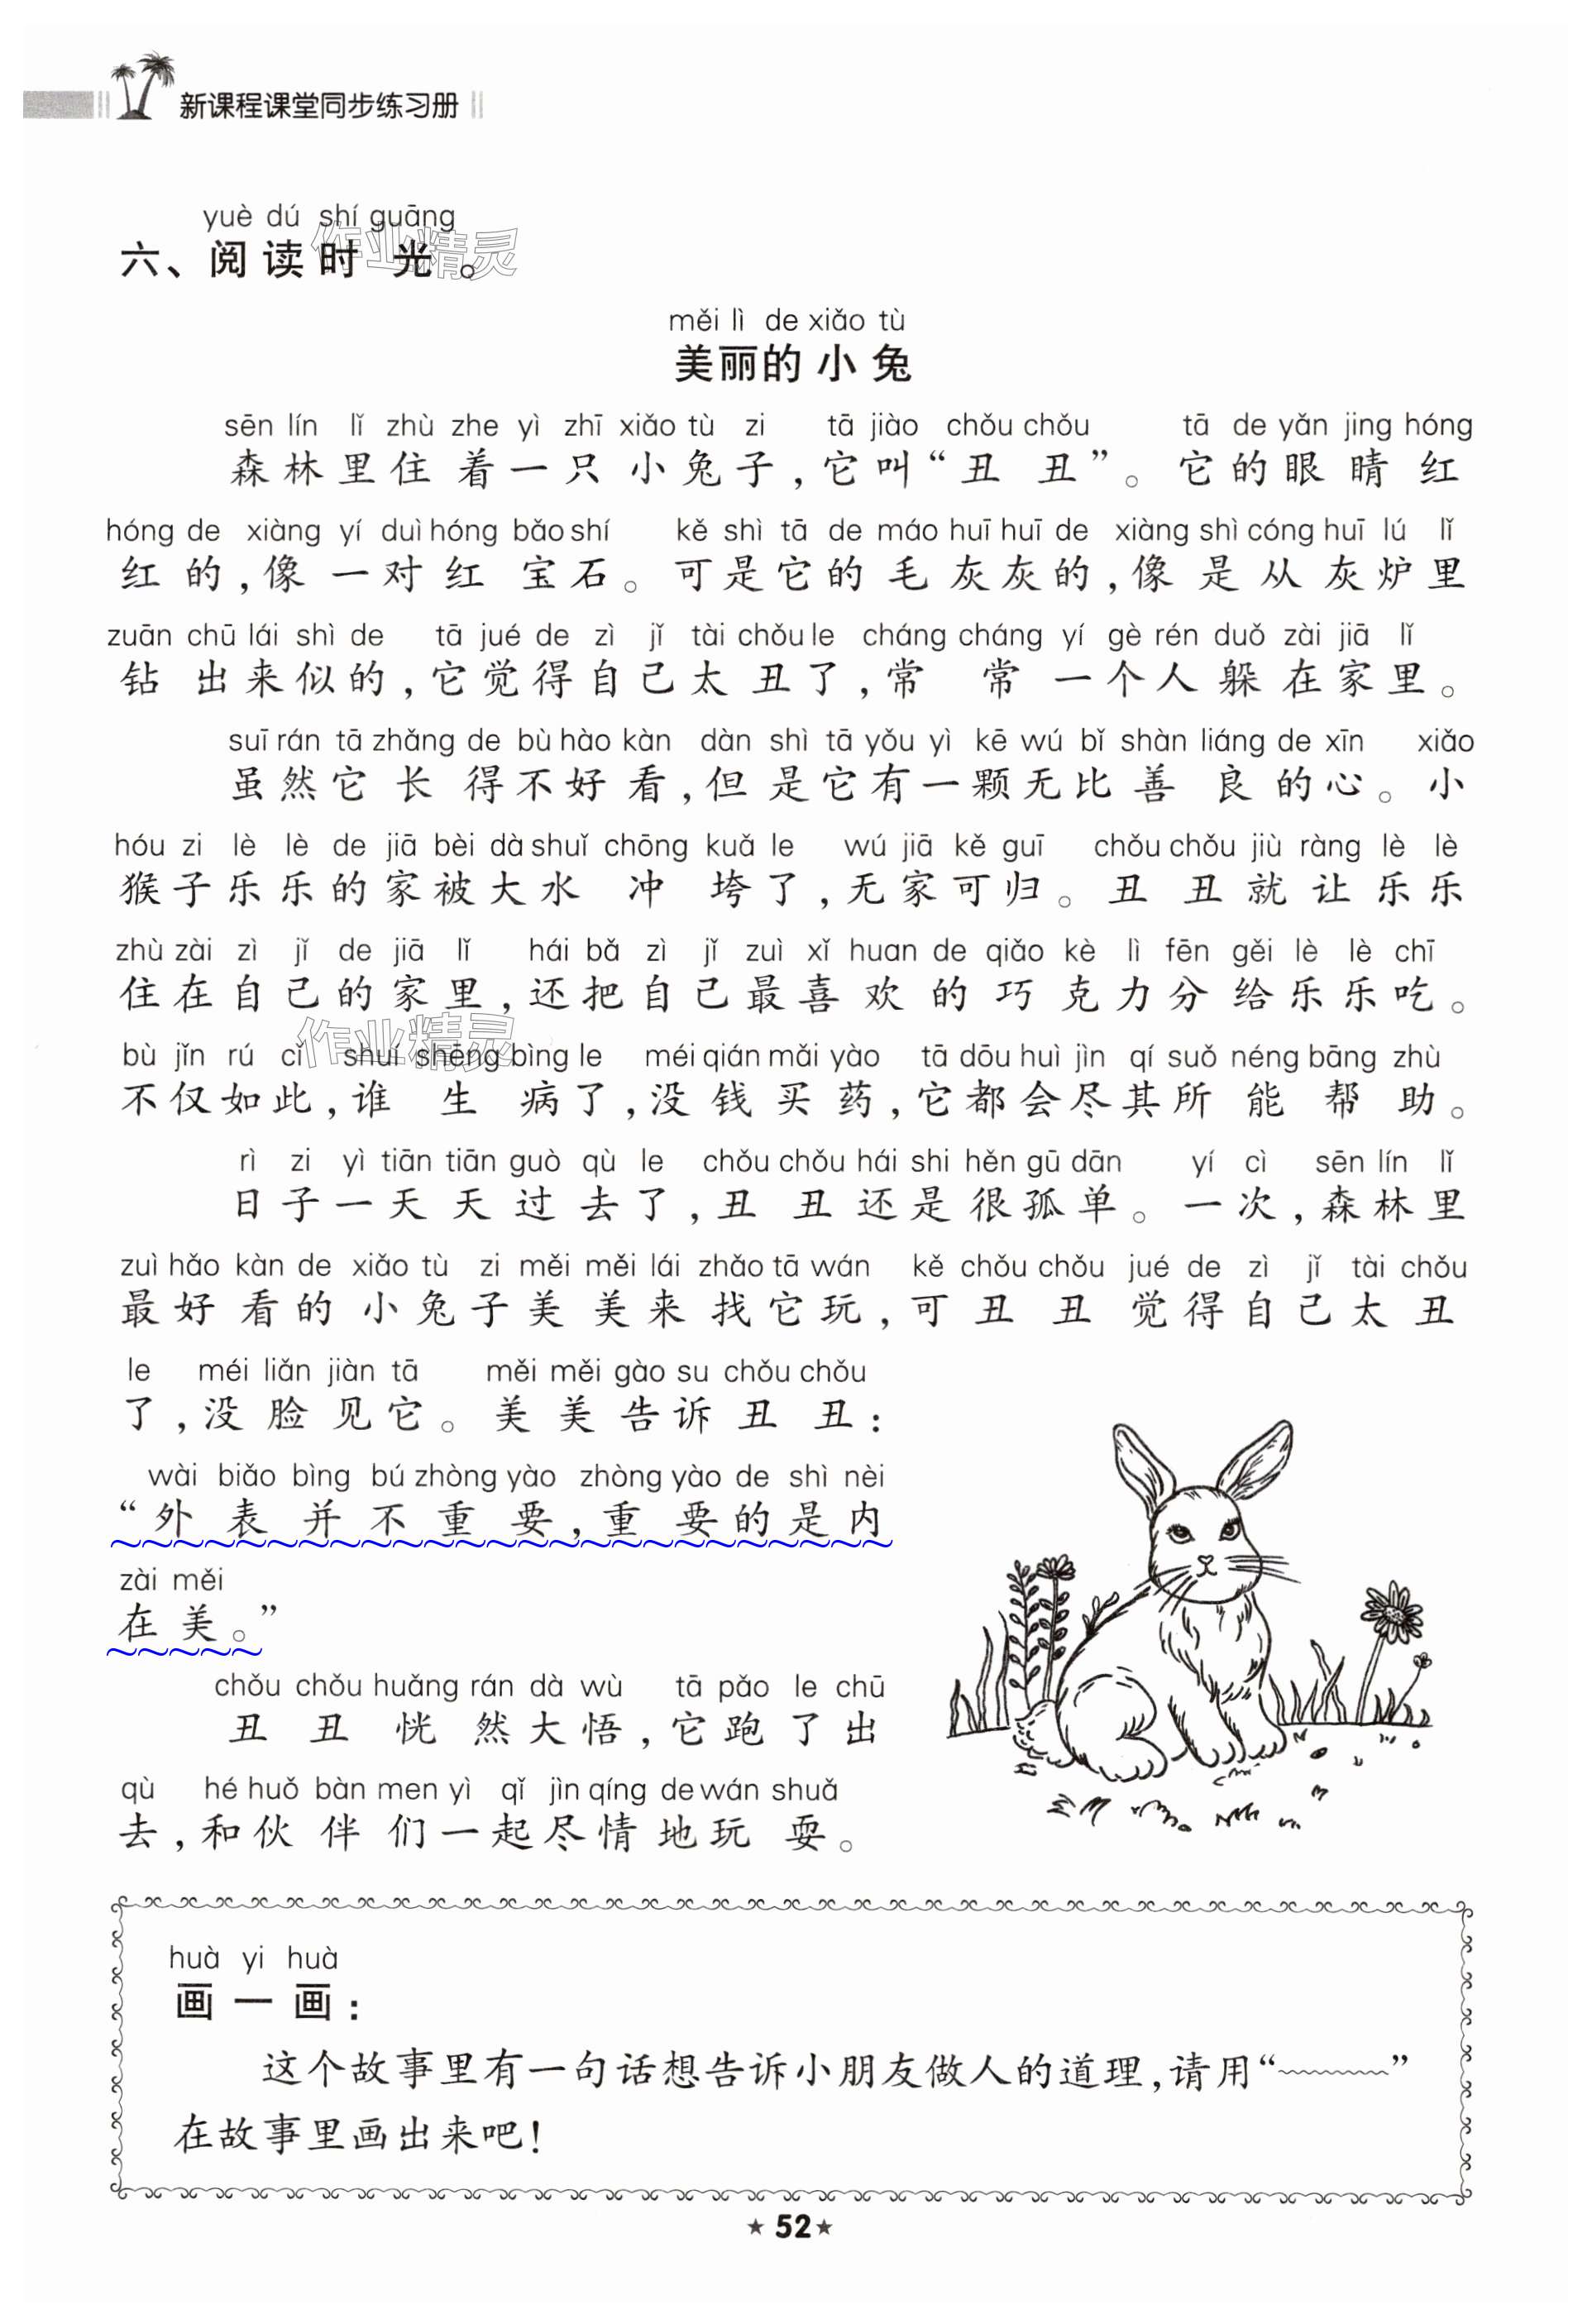 新课程课堂同步练习册
yuè dú shí guāng
六、阅读时光。
作业精灵
měi lì de xiǎo tù
美丽的小兔
sēn lín lǐ zhù zhe yì zhī xiǎo tù zi tā jiào chǒu chǒu tā de yǎn jing hóng
森林里住着一只小兔子，它叫“丑丑”。它的眼睛红
hóng de xiàng yí duì hóng bǎo shí kě shì tā de máo huī huī de xiàng shì cóng huī lú lǐ
红的，像一对红宝石。可是它的毛灰灰的，像是从灰炉里
zuān chū lái shì de tā jué de zì jǐ tài chǒu le cháng cháng yí gè rén duǒ zài jiā lǐ
钻出来似的，它觉得自己太丑了，常常一个人躲在家里。
suī rán tā zhǎng de bù hào kàn dàn shì tā yǒu yì kē wú bǐ shàn liáng de xīn xiǎo
虽然它长得不好看，但是它有一颗无比善良的心。小
hóu zi lè lè de jiā bèi dà shuǐ chōng kuǎ le wú jiā kě guī chǒu chǒu jiù ràng lè lè
猴子乐乐的家被大水冲垮了，无家可归。丑丑就让乐乐
zhù zài zì jǐ de jiā lǐ hái bǎ zì jǐ zuì xǐ huan de qiǎo kè lì fēn gěi lè lè chī
住在自己的家里，还把自己最喜欢的巧克力分给乐乐吃。
作业精灵
bù jǐn rú cǐ shuí shēng bìng le méi qián mǎi yào tā dōu huì jìn qí suǒ néng bāng zhù
不仅如此，谁生病了，没钱买药，它都会尽其所能帮助。
rì zi yì tiān tiān guò qù le chǒu chǒu hái shi hěn gū dān yí cì sēn lín lǐ
日子一天天过去了，丑丑还是很孤单。一次，森林里
zuì hǎo kàn de xiǎo tù zi měi měi lái zhǎo tā wán kě chǒu chǒu jué de zì jǐ tài chǒu
最好看的小兔子美美来找它玩，可丑丑觉得自己太丑
le méi liǎn jiàn tā měi měi gào su chǒu chǒu
了，没脸见它。美美告诉丑丑：
wài biǎo bìng bú zhòng yào zhòng yào de shì nèi
“外表并不重要，重要的是内
zài měi
在美。”
chǒu chǒu huǎng rán dà wù tā pǎo le chū
丑丑恍然大悟，它跑了出
qù hé huǒ bàn men yì qǐ jìn qíng de wán shuǎ
去，和伙伴们一起尽情地玩耍。
huà yi huà
画一画：
这个故事里有一句话想告诉小朋友做人的道理，请用“﹏﹏﹏”
在故事里画出来吧！
★ 52 ★